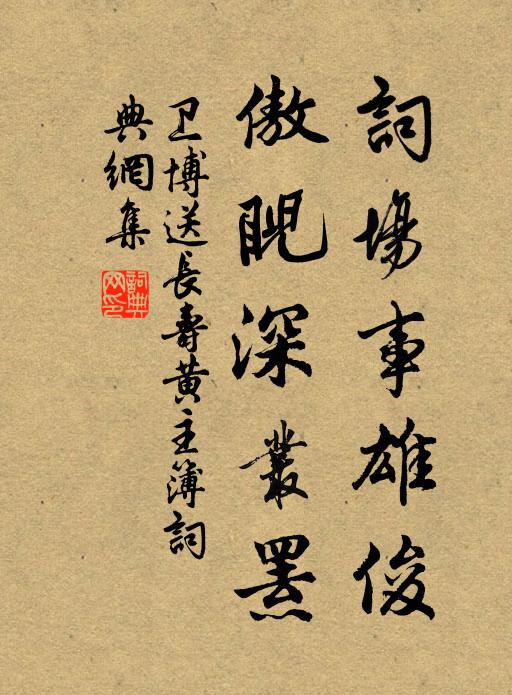 詞場事雄俊
傲睨深叢罴
卫博送長壽黄主簿詞
典網集
詞典
网印